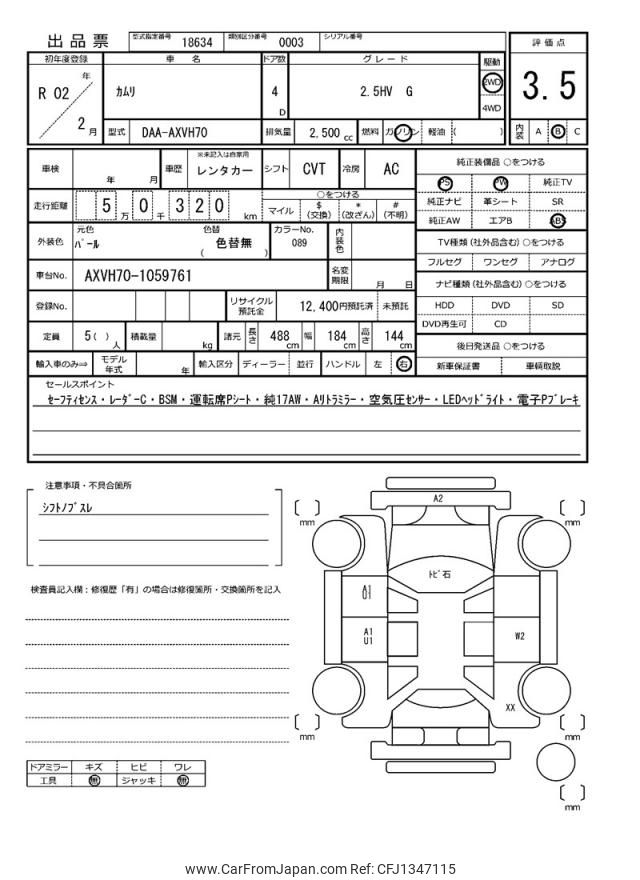 出品票 型式指定番号 18634 類別区分番号 0003 シリアル番号
評価点
3.5
内装 A B C
初年度登録 車名 ドア数 グレード 駆動
R 02 年 2 月
カムリ 4 D 2.5HV G 2WD 4WD
型式 DAA-AXVH70 排気量 2,500 cc 燃料 ガソリン 軽油 ( )
車検 年 月 車歴 ※未記入は自家用 レンタカー シフト CVT 冷房 AC
走行距離 5 万 0 千 3 2 0 km
○をつける
マイル $ (交換) * (改ざん) # (不明)
外装色 元色 パール 色替 色替無 ( ) カラーNo. 089 内装色
車台No. AXVH70-1059761 名変期限 月 日
登録No. リサイクル預託金 12,400円預託済 未預託
定員 5( ) 人 積載量 kg 諸元 長さ 488 cm 幅 184 cm 高さ 144 cm
輸入車のみ⇒ モデル年式 年 輸入区分 ディーラー 並行 ハンドル 左 右
純正装備品 ○をつける
PS PW 純正TV
純正ナビ 革シート SR
純正AW エアB ABS
TV種類 (社外品含む) ○をつける
フルセグ ワンセグ アナログ
ナビ種類 (社外品含む) ○をつける
HDD DVD SD
DVD再生可 CD
後日発送品 ○をつける
新車保証書 車輌取説
セールスポイント
セーフティセンス・レーダーC・BSM・運転席Pシート・純17AW・Aリトラミラー・空気圧センサー・LEDヘッドライト・電子Pブレーキ
注意事項・不具合箇所
シフトノブスレ
検査員記入欄：修復歴「有」の場合は修復箇所・交換箇所を記入
A2
[ ] mm
[ ] mm
トビ石
A1
U1
A1
U1
W2
XX
[ ] mm
[ ] mm
[ ] mm
ドアミラー キズ ヒビ ワレ
工具 無 ジャッキ 無
www.CarFromJapan.com Ref: CFJ1347115